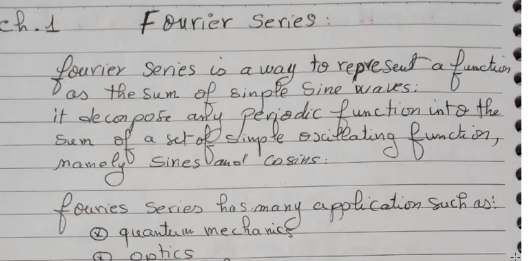 ch. 1 Fourier Series:
fourier series is a way to represent a function
as the sum of simple sine waves:
it decompose any periodic function into the
sum of a set of simple oscillating function,
namely sines and cosins.
fouries series has many application such as:
⊗ quantum mechanics
⊗ optics